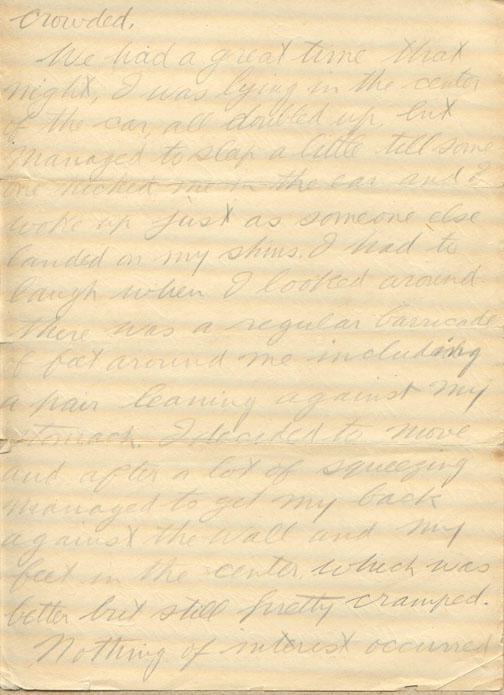 crowded.
We had a great time that
night, I was lying in the center
of the car, all doubled up, but
managed to slep a little till some
one kicked me in the ear and I
woke up just as someone else
landed on my shins. I had to
laugh when I looked around
there was a regular barricade
of feet around me including
a pair leaning against my
stomach. I decided to move
and after a lot of squeezing
managed to get my back
against the wall and my
feet in the center, which was
better but still pretty cramped.
Nothing of interest occurred